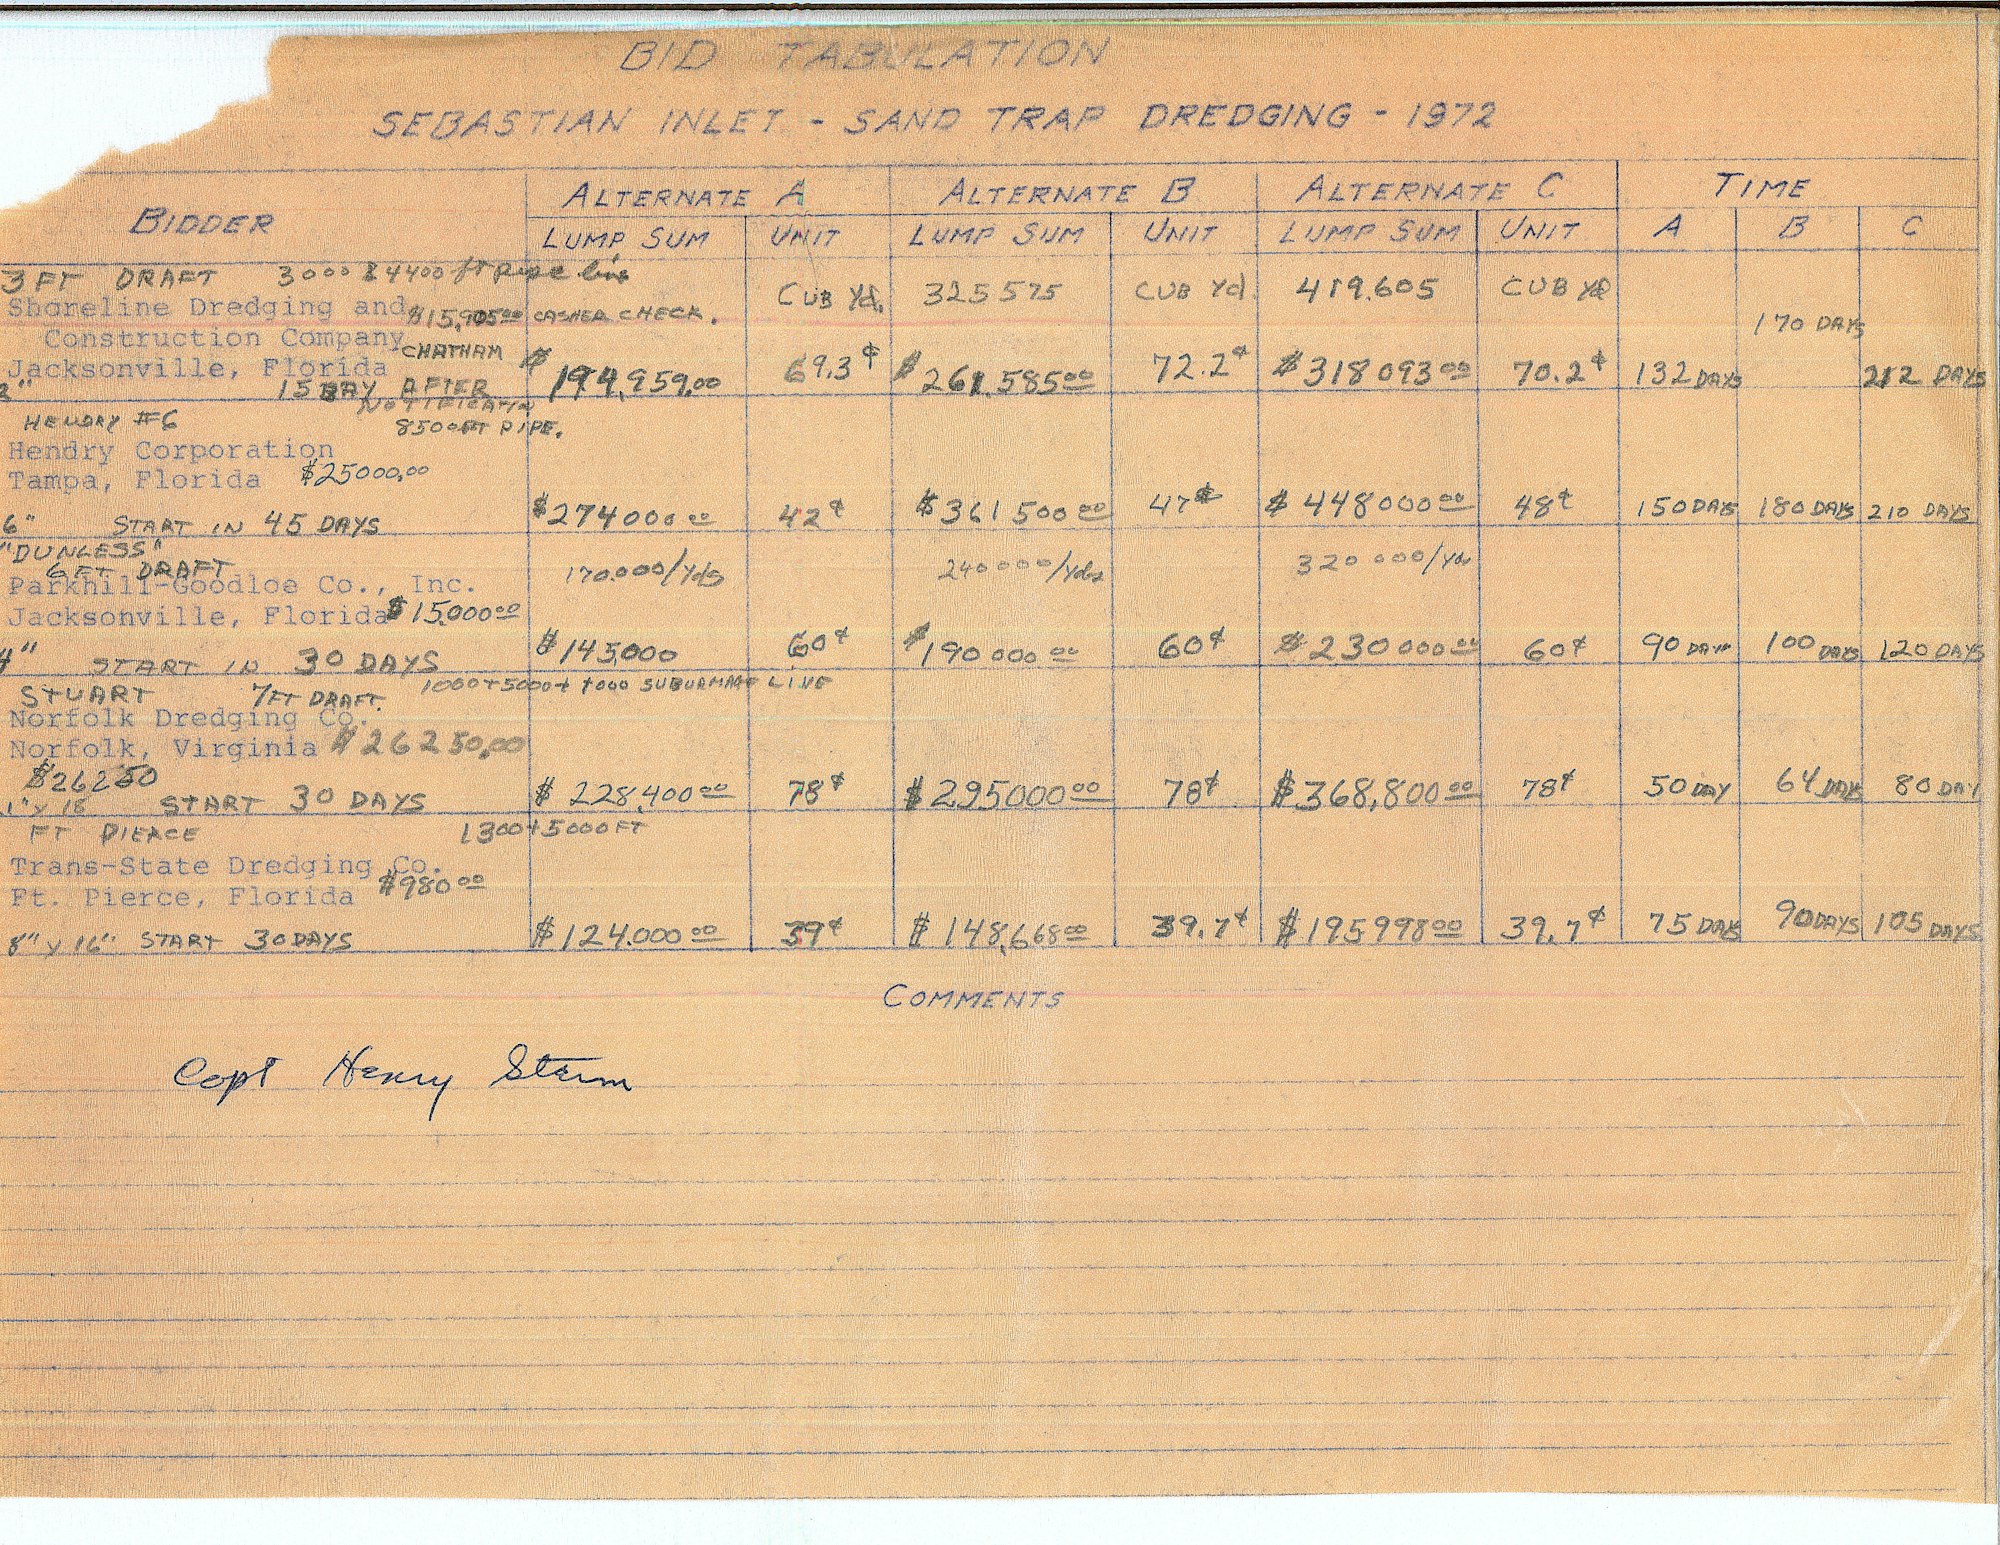 BID TABULATION
SEBASTIAN INLET - SAND TRAP DREDGING - 1972
BIDDER ALTERNATE A ALTERNATE B ALTERNATE C TIME
LUMP SUM UNIT LUMP SUM UNIT LUMP SUM UNIT A B C
3 FT DRAFT 3000 & 4400 ft pipe line
CUB Yd. 325575 CUB Yd 419.605 CUB Yd
Shoreline Dredging and $15,905.00 CASHER CHECK.
Construction Company CHATHAM 170 DAYS
Jacksonville, Florida $194,959.00 69.3¢ $261,585.00 72.2¢ $318093.00 70.2¢ 132 DAYS 212 DAYS
2" 15 DAY AFTER
NOTIFICATIN
HENDRY #6 8500 FT PIPE.
Hendry Corporation
Tampa, Florida $25000.00
6" START IN 45 DAYS $274000.00 42¢ $361500.00 47¢ $448000.00 48¢ 150 DAYS 180 DAYS 210 DAYS
"DUNLESS"
6 FT DRAFT 170.000/Yds 240000/Yds 320000/Yds
Parkhill-Goodloe Co., Inc.
Jacksonville, Florida $15,000.00
4" START IN 30 DAYS $145,000 60¢ $190000.00 60¢ $230000.00 60¢ 90 DAYS 100 DAYS 120 DAYS
STUART 7 FT DRAFT. 1000+5000+ LINE
Norfolk Dredging Co.
Norfolk, Virginia $26250.00
$26250
1" x 18 START 30 DAYS $228,400.00 78¢ $295000.00 78¢ $368,800.00 78¢ 50 DAY 64 DAYS 80 DAY
FT PIERCE 1300+5000 FT
Trans-State Dredging Co.
Ft. Pierce, Florida $980.00
8" x 16" START 30 DAYS $124.000.00 39¢ $148,668.00 39.7¢ $195998.00 39.7¢ 75 DAYS 90 DAYS 105 DAYS
COMMENTS
Capt Henry Sterm